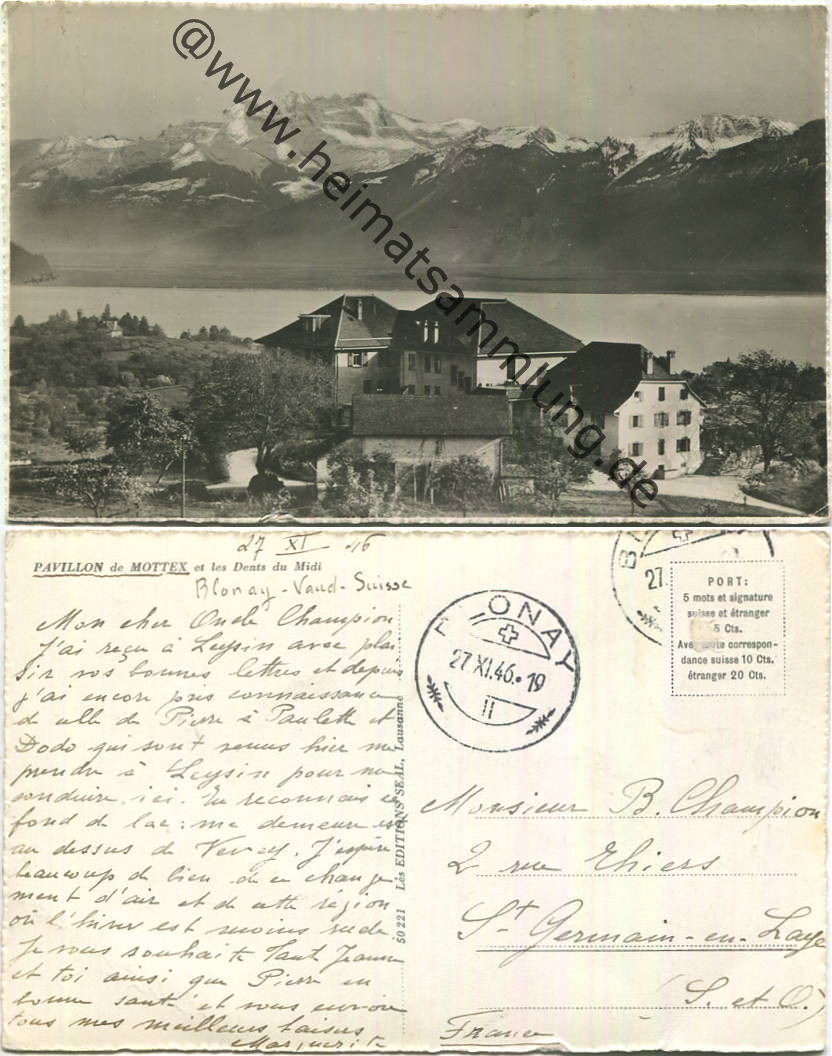 @www.heimatsammlung.de
27 XI 46
PAVILLON de MOTTEX et les Dents du Midi
Blonay - Vaud - Suisse
Mon cher Oncle Champion
J'ai reçu à Leysin avec plai
sir vos bonnes lettres et depuis
j'ai encore pris connaissance
de celle de Pierre à Paulette et
Dodo qui sont venus hier me
prendre à Leysin pour me
conduire ici. Tu reconnais ce
fond de lac: ma demeure est
au dessus de Vevey. J'espère
beaucoup de bien de ce change
ment d'air et de cette région
où l'hiver est moins rude.
Je vous souhaite Tant Jeanne
et toi ainsi que Pierre en
bonne santé et vous envoie
tous mes meilleurs baisers
Marguerite
50 221 Les EDITIONS SEAL, Lausanne
BLONAY
27.XI.46.-19
II
BL
27
PORT:
5 mots et signature
suisse et étranger
5 Cts.
Avec toute correspon-
dance suisse 10 Cts.
étranger 20 Cts.
Monsieur B. Champion
2 rue Thiers
St Germain-en-Laye
(S. et O.)
France